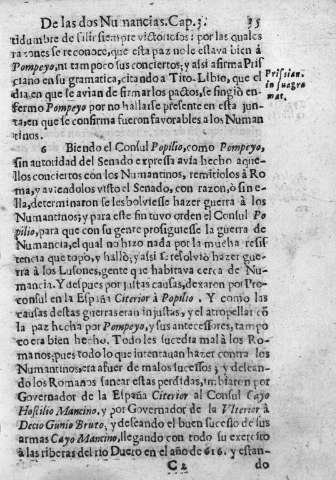 De las dos Numancias. Cap. 3. 35
tidumbre de salir siempre victoriosos: por las quales
razones se reconoce, que esta paz no le estava bien à
Pompeyo, ni tampoco sus conciertos; y assi afirma Pris
ciano en su gramatica, citando a Tito-Libio, que el
dia, en que se avian de firmar los pactos, se fingiò en-
fermo Pompeyo por no hallarse presente en esta jun-
ta, en que se confirma fueron favorables a los Numan
tinos.
Priscian.
in suo gra
mat.
6 Biendo el Consul Popilio, como Pompeyo,
sin autoridad del Senado expressa avia hecho aque-
llos conciertos con los Numantinos, remitiolos à Ro
ma, y aviendolos visto el Senado, con razon, ò sin e-
lla, determinaron se les bolviesse hazer guerra à los
Numantinos; y para este fin tuvo orden el Consul Po
pilio, para que con su gente prosiguiesse la guerra de
Numancia, el qual no hizo nada por la mucha resis
tencia que topò, y hallò; y assi se resolviò hazer guer
ra à los Lusones, gente que habitava cerca de Nu-
mancia. Y despues por justas causas, dexaron por Pro-
consul en la España Citerior à Popilio. Y como las
causas destas guerras eran injustas, y el atropellar cõ
la paz hecha por Pompeyo, y sus antecessores, tampo
co era bien hecho. Todo les sucedia mal à los Ro-
manos; pues todo lo que intentavan hazer contra los
Numantinos, era afuer de malos sucessos; y desean-
do los Romanos sanear estas perdidas, imbiaron por
Governador de la España Citerior al Consul Cayo
Hostilio Mancino, y por Governador de la Vlterior à
Decio Gunio Bruto, y deseando el buen sucesso de sus
armas Cayo Mancino, llegando con todo su exercito
à las riberas del rio Duero en el año de 616. y estan-
C2 do